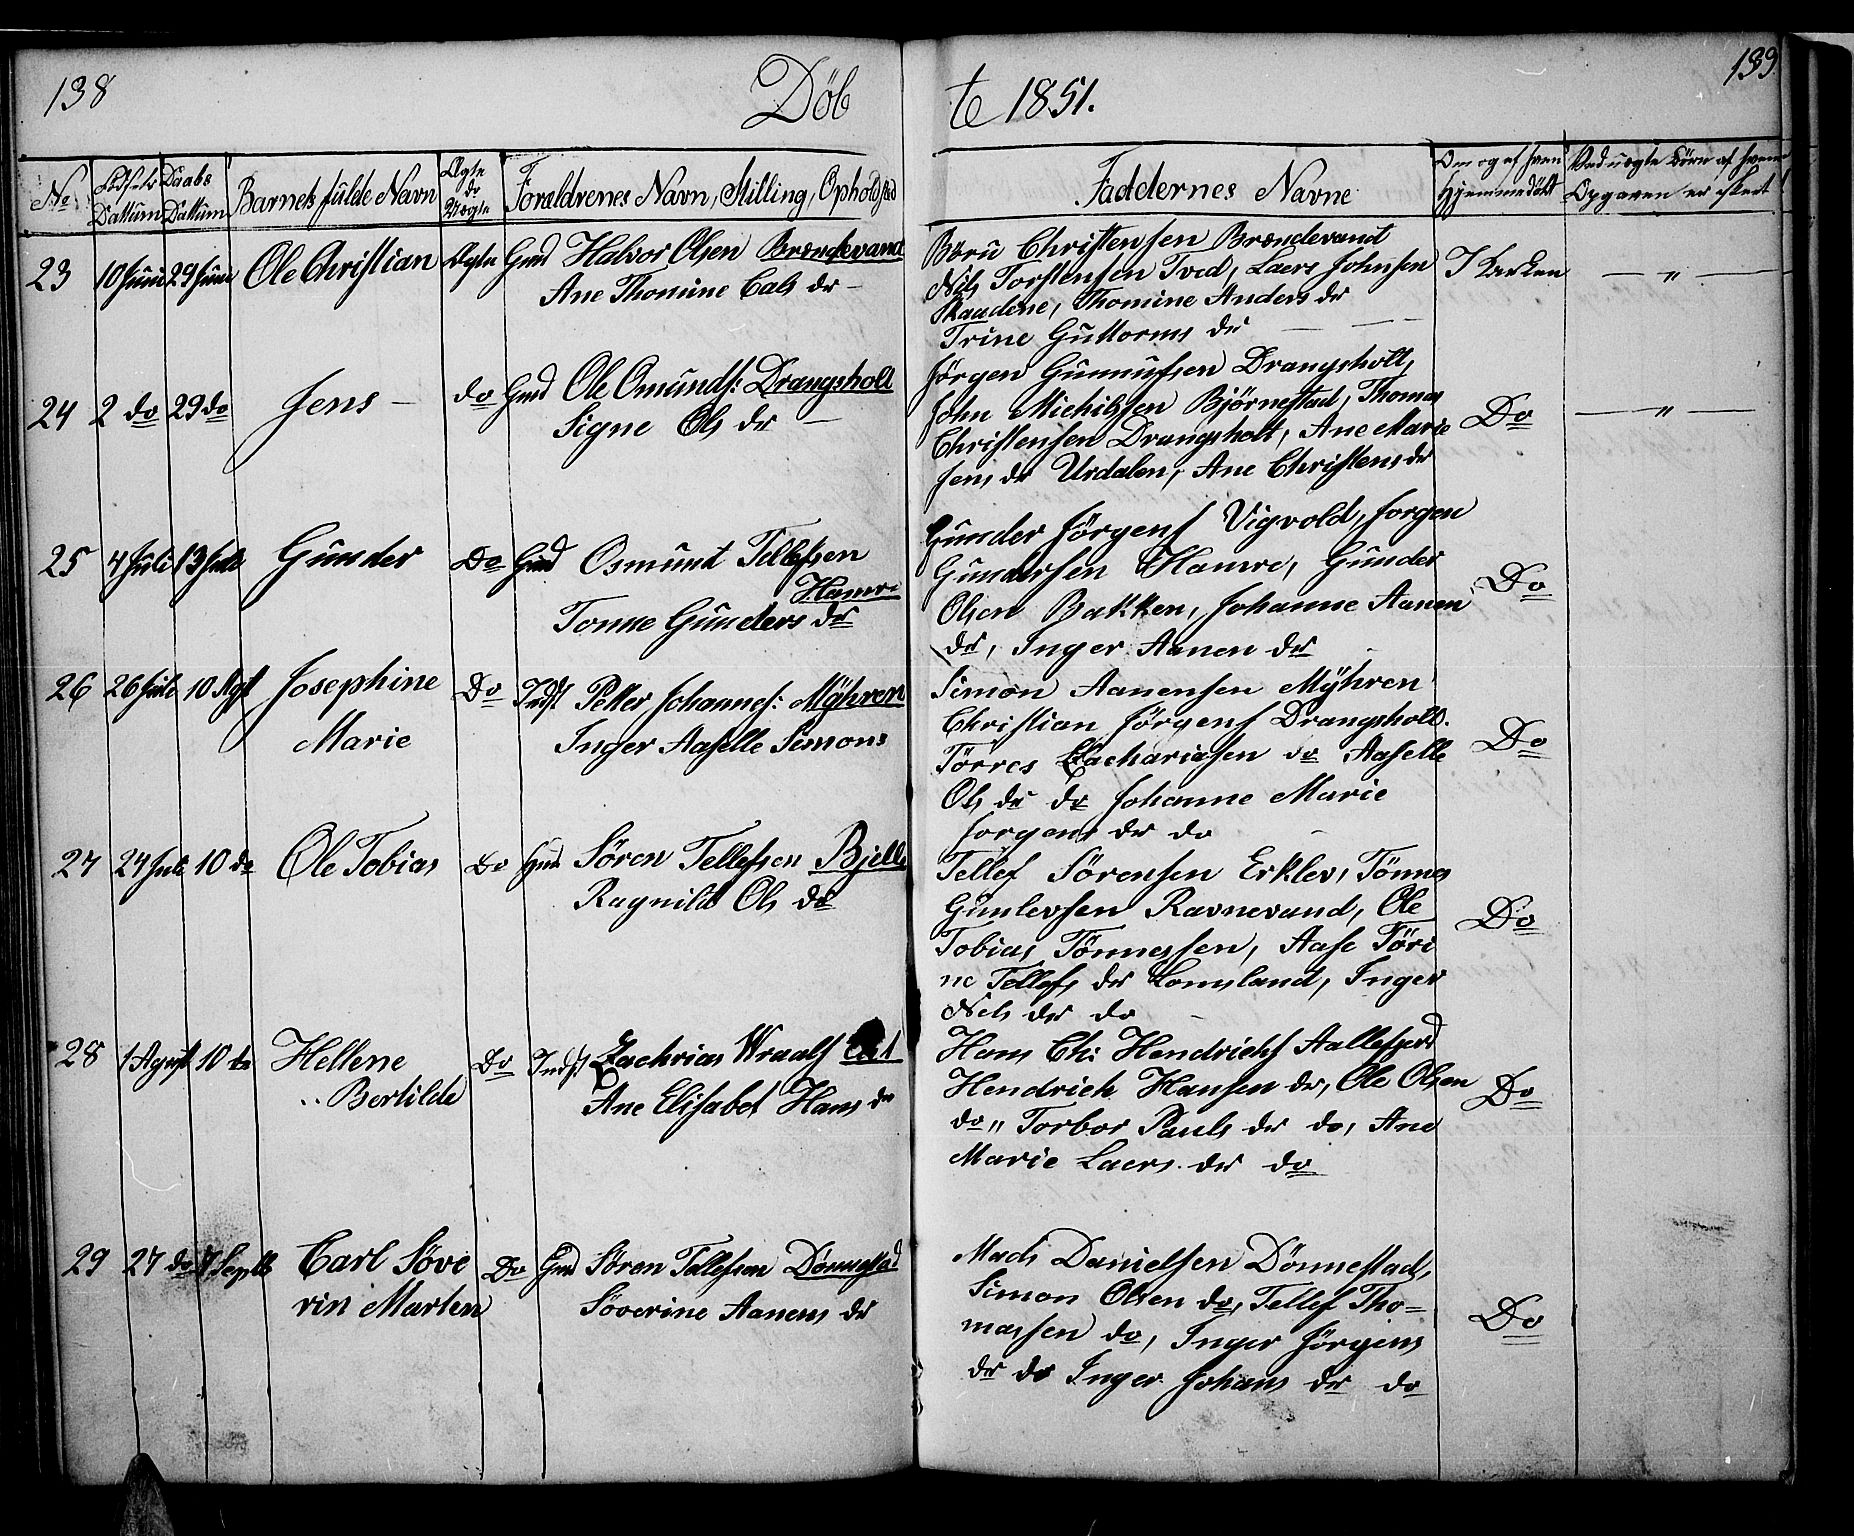 138
Döb
te 1851.
139
No
Födsels Dattum
Daabs Dattum
Barnets fulde Navn
Ægte do Uægte
Forældrenes Navn, Stilling, Opholdsted
Faddernes Navne
Om og af hvem Hjemmedöbt
Ved uægte Börn af hvem Opgaven er skeet
23 10 Juni 29 Juni Ole Christian Ægte Gmd Halvor Olsen Brændevand
Ane Thomine Cals dr —
Böru Christensen Brændevand
Nils Torstensen Tved, Laers Johnsen
Skaadene, Thomine Anders dr
Trine Guttorms dr
I Kirken — " —
24 2 do 29 do Jens — do Gmd Ole Omunds: Drangsholt
Signe Ols dr —
Jörgen Gunnufsen Drangsholt,
John Michilsen Björnestad, Thomas
Christensen Drangsholt, Ane Marie
Jens dr Urdalen, Ane Christens dr
Do — " —
25 4 Juli 13 Juli Gunder Do Gmd Osmund Tellefsen
Hamre
Tonne Gunders dr
Gunder Jörgens Vigvold, Jorgen
Gundersen Hamre, Gunder
Olsen Bakken, Johanne Aanen
dr, Inger Aanen dr
Do
26 26 Juli 10 Agst Josephine Do Indst Petter Johannes: Mÿhren
Marie
Inger Aaselle Simons
Simon Aanensen Mÿhren
Christian Jörgens Drangsholt.
Törres Zachariasen do Aaselle
Ols dr do Johanne Marie
Jorgens dr do
Do
27 24 Juli 10 do Ole Tobias Do Gmd Sören Tellefsen Bjelle
Ragnild Ols dr
Tellef Sörensen Erklev, Tönnes
Gunlevsen Ravnevand, Ole
Tobias Tönnessen, Aase Töri
ne Tellefs dr Lomsland, Inger
Nils dr do
Do
28 1 Agust 10 do Hellene Do Indst Zachrias Wraals
Bertilde
Ane Elisabet Hans dr
Hans Ch: Hendrichs Aallefjerd
Hendrich Hansen do, Ole Olsen
do " Torbor Pauls dr do, Ane
Marie Laers dr do
Do
29 27 do 7 Septb Carl Söve Do Gmd Sören Tellefsen Dönnestad
rin Marten
Söverine Aanens dr
Mads Danielsen Dönnestad,
Simon Olsen do, Tellef Tho=
massen do, Inger Jörgens
dr do Inger Johans dr do
Do